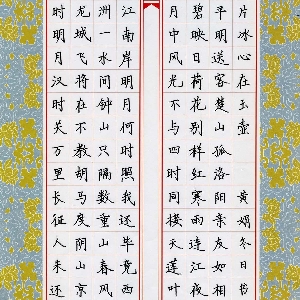 片冰心在玉壶 黄娟冬日书
平明送客楚山孤洛阳亲友如相
碧映日荷花别样红寒雨连江夜
月中风光不与四时同接天莲叶
江南岸明月何时照我还毕竟西
洲一水间钟山只隔数重山春风
龙城飞将在不教胡马度阴山京
时明月汉时关万里长征人未还